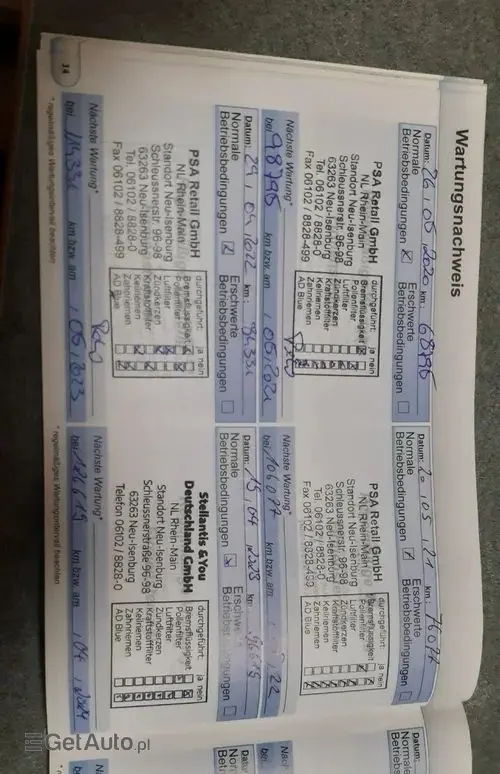 Wartungsnachweis
Datum: 26, 05, 2020 km: 68796
Normale Betriebsbedingungen
Erschwerte Betriebsbedingungen
PSA Retail GmbH
NL Rhein-Main
Standort Neu-Isenburg
Schleussnerstr. 96-98
63263 Neu-Isenburg
Tel. 06102 / 8828-0
Fax 06102 / 8828-499
durchgeführt: ja nein
Bremsflüssigkeit
Pollenfilter
Luftfilter
Zündkerzen
Kraftstofffilter
Keilriemen
Zahnriemen
AD Blue
Nächste Wartung*
bei 98796 km bzw. am , 05, 2021
Datum: 20, 05, 21 km: 76077
Normale Betriebsbedingungen
Erschwerte Betriebsbedingungen
PSA Retail GmbH
NL Rhein-Main
Standort Neu-Isenburg
Schleussnerstr. 96-98
63263 Neu-Isenburg
Tel. 06102 / 8828-0
Fax 06102 / 8828-499
durchgeführt: ja nein
Bremsflüssigkeit
Pollenfilter
Luftfilter
Zündkerzen
Kraftstofffilter
Keilriemen
Zahnriemen
AD Blue
Nächste Wartung*
bei 106077 km bzw. am 22
Datum: 29, 04, 2022 km:
Normale Betriebsbedingungen
Erschwerte Betriebsbedingungen
PSA Retail GmbH
NL Rhein-Main
Standort Neu-Isenburg
Schleussnerstr. 96-98
63263 Neu-Isenburg
Tel. 06102 / 8828-0
Fax 06102 / 8828-499
durchgeführt: ja nein
Bremsflüssigkeit
Pollenfilter
Luftfilter
Zündkerzen
Kraftstofffilter
Keilriemen
Zahnriemen
AD Blue
Nächste Wartung*
bei km bzw. am , 05, 2023
* regelmäßiges Wartungsintervall beachten
Datum: 15, 04, 2023
Normale Betriebsbedingungen
Betriebsbedingungen
Stellantis &You
Deutschland GmbH
NL Rhein-Main
Standort Neu-Isenburg
Schleussnerstraße 96-98
63263 Neu-Isenburg
Telefon 06102 / 8828-0
durchgeführt: ja nein
Bremsflüssigkeit
Pollenfilter
Luftfilter
Zündkerzen
Kraftstofffilter
Keilriemen
Zahnriemen
AD Blue
Nächste Wartung*
bei km bzw. am , 04, 2024
* regelmäßiges Wartungsintervall beachten
14
Datum:
Normale
Betriebsbe
Datum:
Normale
Betriebsb
bei
GetAuto.pl